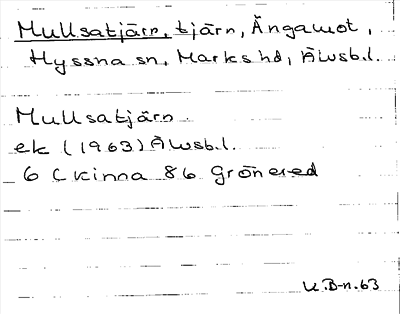 Mullsatjärn, tjärn, Ängamot,
Hyssna sn, Marks hd, Älvsb.l.
Mullsatjärn
ek (1963) Älvsb.l.
6 C Kinna 86 Grönered
U.B-n.63